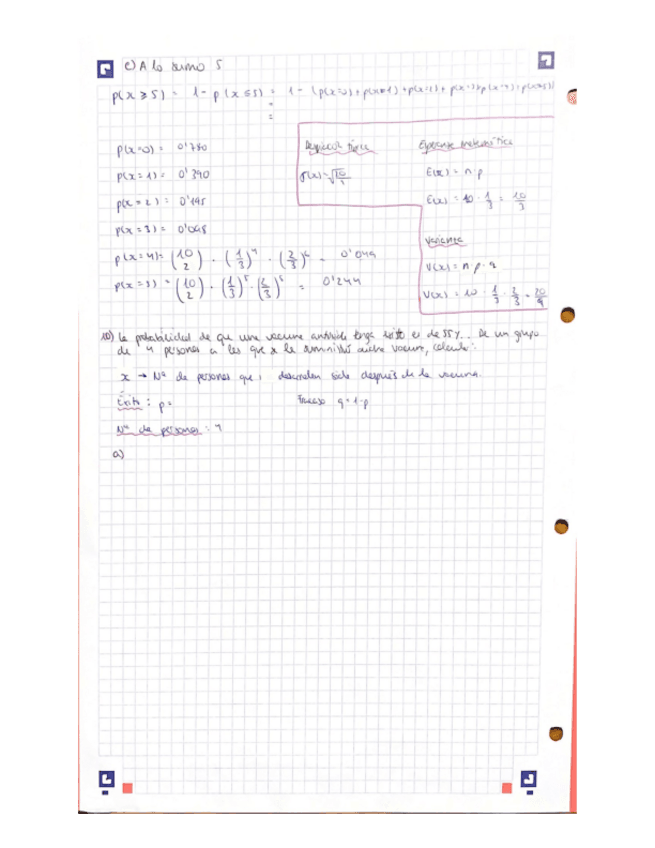 c) A lo sumo 5
p(x ≥ 5) = 1 - p(x ≤ 5) = 1 - (p(x=0) + p(x=1) +
=
=
p(x=0) = 0'780
p(x=1) = 0'390
p(x=2) = 0'195
p(x=3) = 0'048
p(x=4) = (10 2) · (1/3)^4 · (2/3)^6 = 0'049
(10 2) · (1/3)^5 · (2/3)^5 = 0'244
típica
Esperanza matemática
E(x) = n·p
E(x) = 10 · 1/3 = 10/3
Varianza
V(x) = n·p·q
V(x) = 10 · 1/3 · 2/3 = 20/9
10) La probabilidad de que una vacuna tenga éxito es de 55%. De un grupo
de 4 personas a las que se le dicha vacuna, calcula:
x → Nº de personas que después de la vacuna.
Éxito: p=
Fracaso q=1-p
Nº de personas: 4
a)